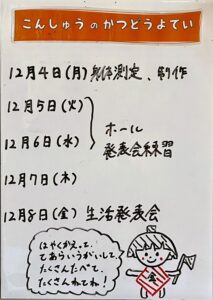 こんしゅうのかつどうよてい
12月4日(月)身体測定、制作
12月5日(火)
12月6日(水)
ホール
発表会練習
12月7日(木)
12月8日(金)生活発表会
はやくかえって、
てあらいうがいして、
たくさんたべて、
たくさんねてね!
金